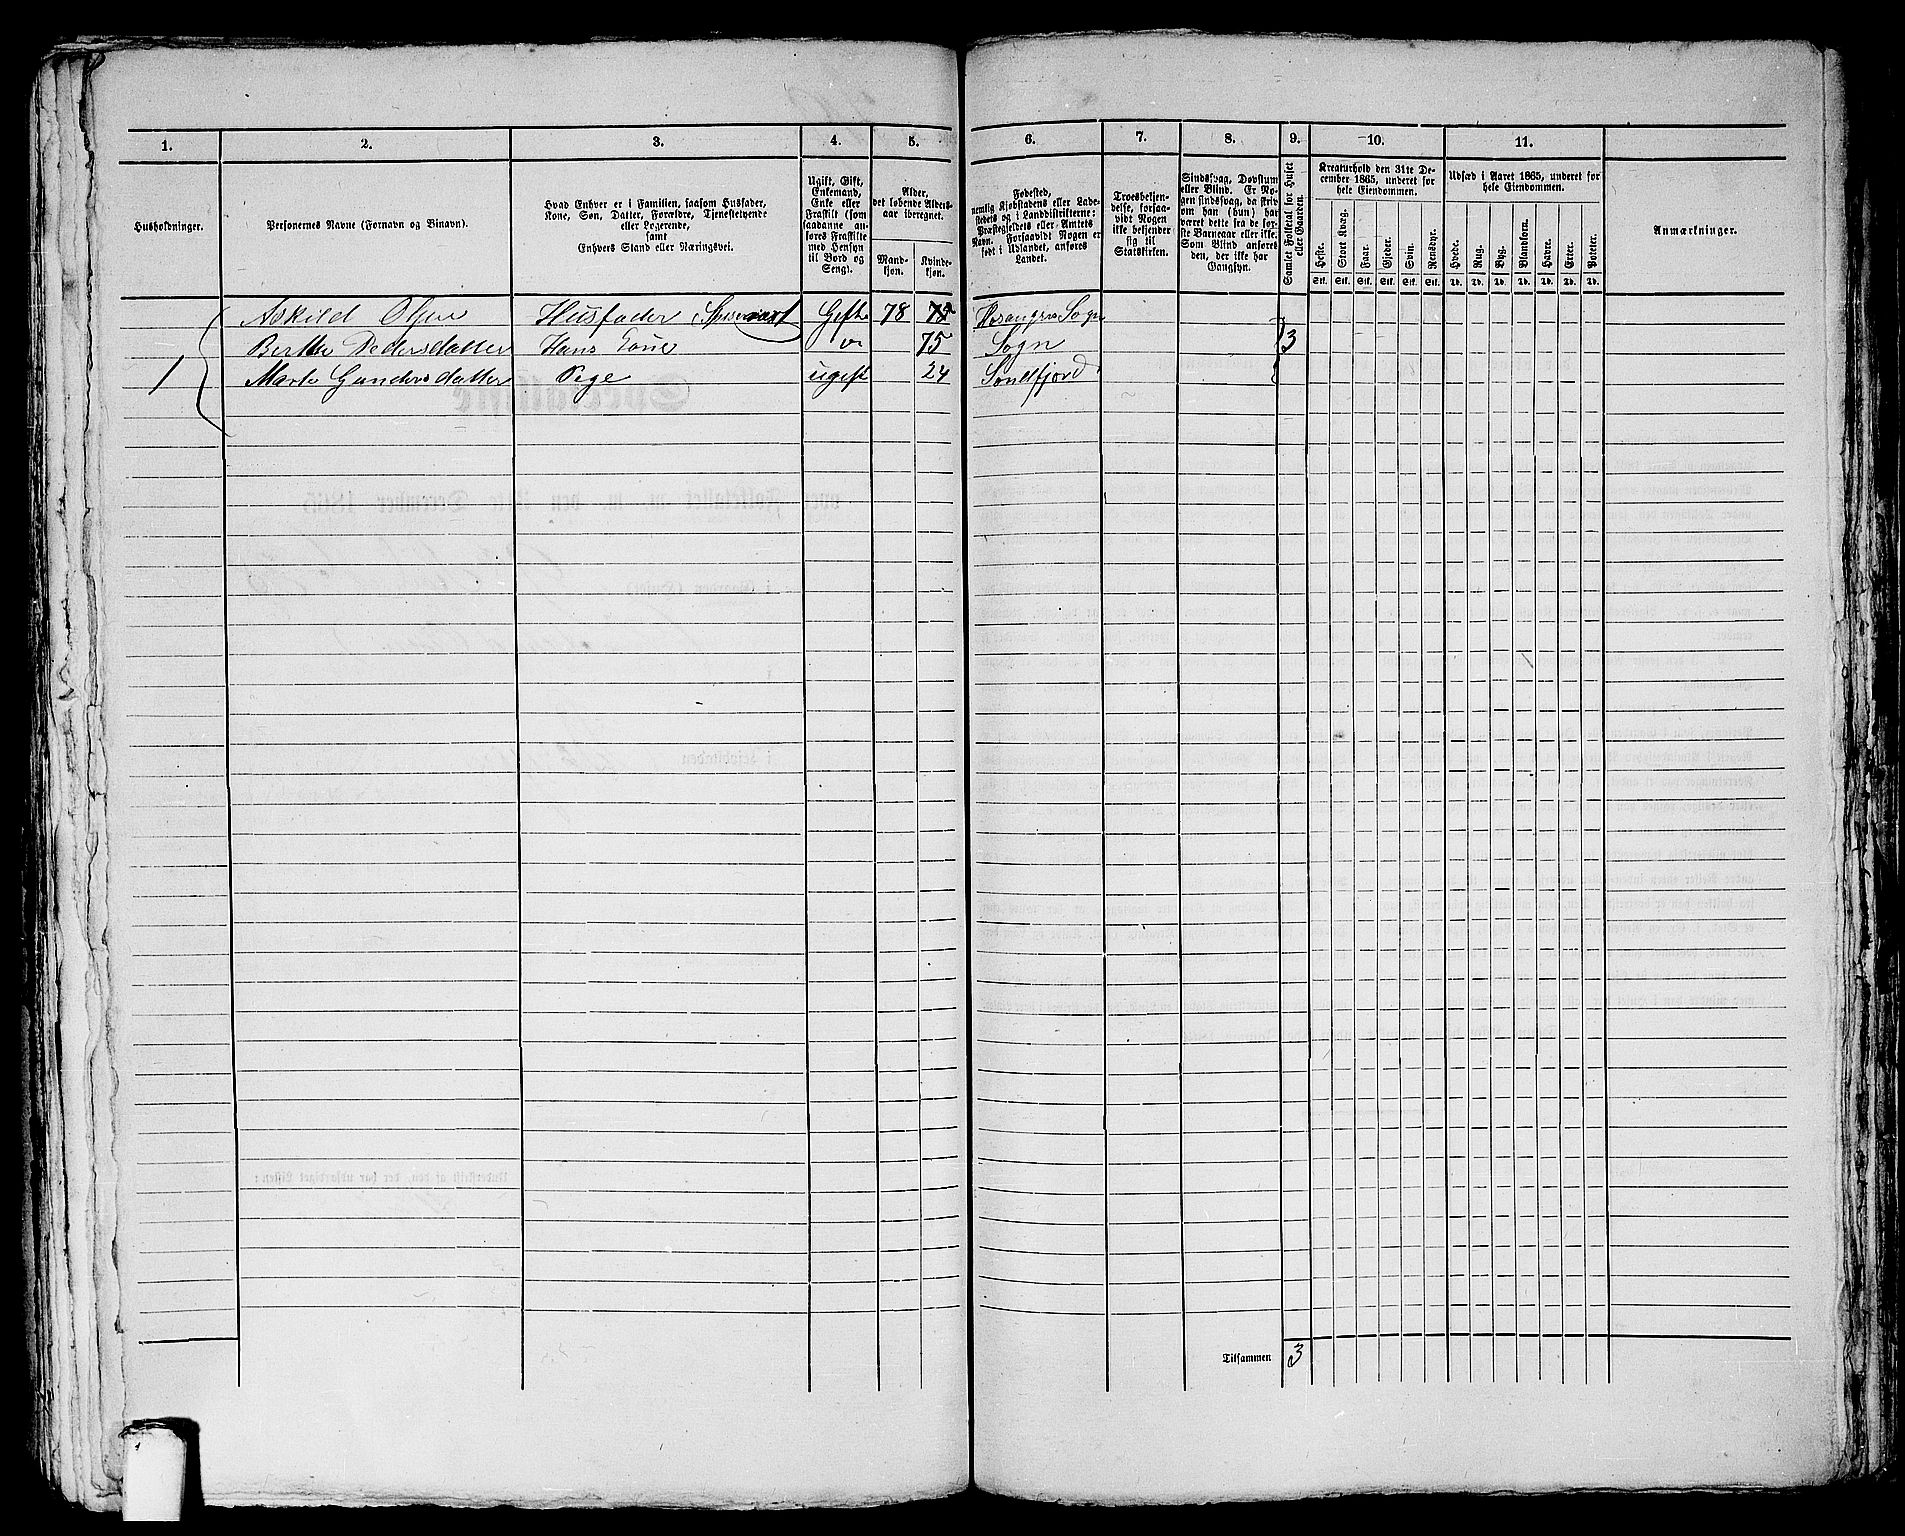 1. 2. 3. 4. 5. 6. 7. 8. 9. 10. 11.
Husholdninger.
Personernes Navne (Fornavn og Binavn).
Hvad Enhver er i Familien, saasom Husfader,
Kone, Søn, Datter, Forældre, Tjenestetyende
eller Logerende,
samt
Enhvers Stand eller Næringsvei.
Ugift, Gift,
Enkemand,
Enke eller
Fraskilt (som
saadanne an-
føres Fraskilte
med Hensyn
til Bord og
Seng).
Alder,
det løbende Alders-
aar iberegnet.
Mand-
kjøn.
Kvinde-
kjøn.
Fødested,
nemlig Kjøbstadens eller Lade-
stedets og i Landdistrikterne:
Præstegjeldets eller Amtets
Navn. Forsaavidt Nogen er
født i Udlandet, anføres
Landet.
Troesbekjen-
delse, forsaa-
vidt Nogen
ikke bekjender
sig til
Statskirken.
Sindssvag, Døvstum
eller Blind. Er No-
gen sindssvag, da skriv
om han (hun) har
været dette fra de før-
ste Barneaar eller ikke.
Som Blind anføres
den, der ikke har
Gangsyn.
Samlet Folketal for Huset
eller Gaarden.
Kreaturhold den 31te De-
cember 1865, underet for
hele Eiendommen.
Heste. Stort Kvæg. Faar. Gjeder. Svin. Rensdyr.
Stk. Stk. Stk. Stk. Stk. Stk.
Udsæd i Aaret 1865, underet for
hele Eiendommen.
Hvede. Rug. Byg. Blandkorn. Havre. Erter. Poteter.
Td. Td. Td. Td. Td. Td. Td.
Anmærkninger.
Askild Olsen Husfader Gift 78 75 Sogn
Berthe Pedersdatter Hans Kone 75 Sogn 3
1 Marte Gundersdatter Pige ugift 24 Söndfjord
Tilsammen 3